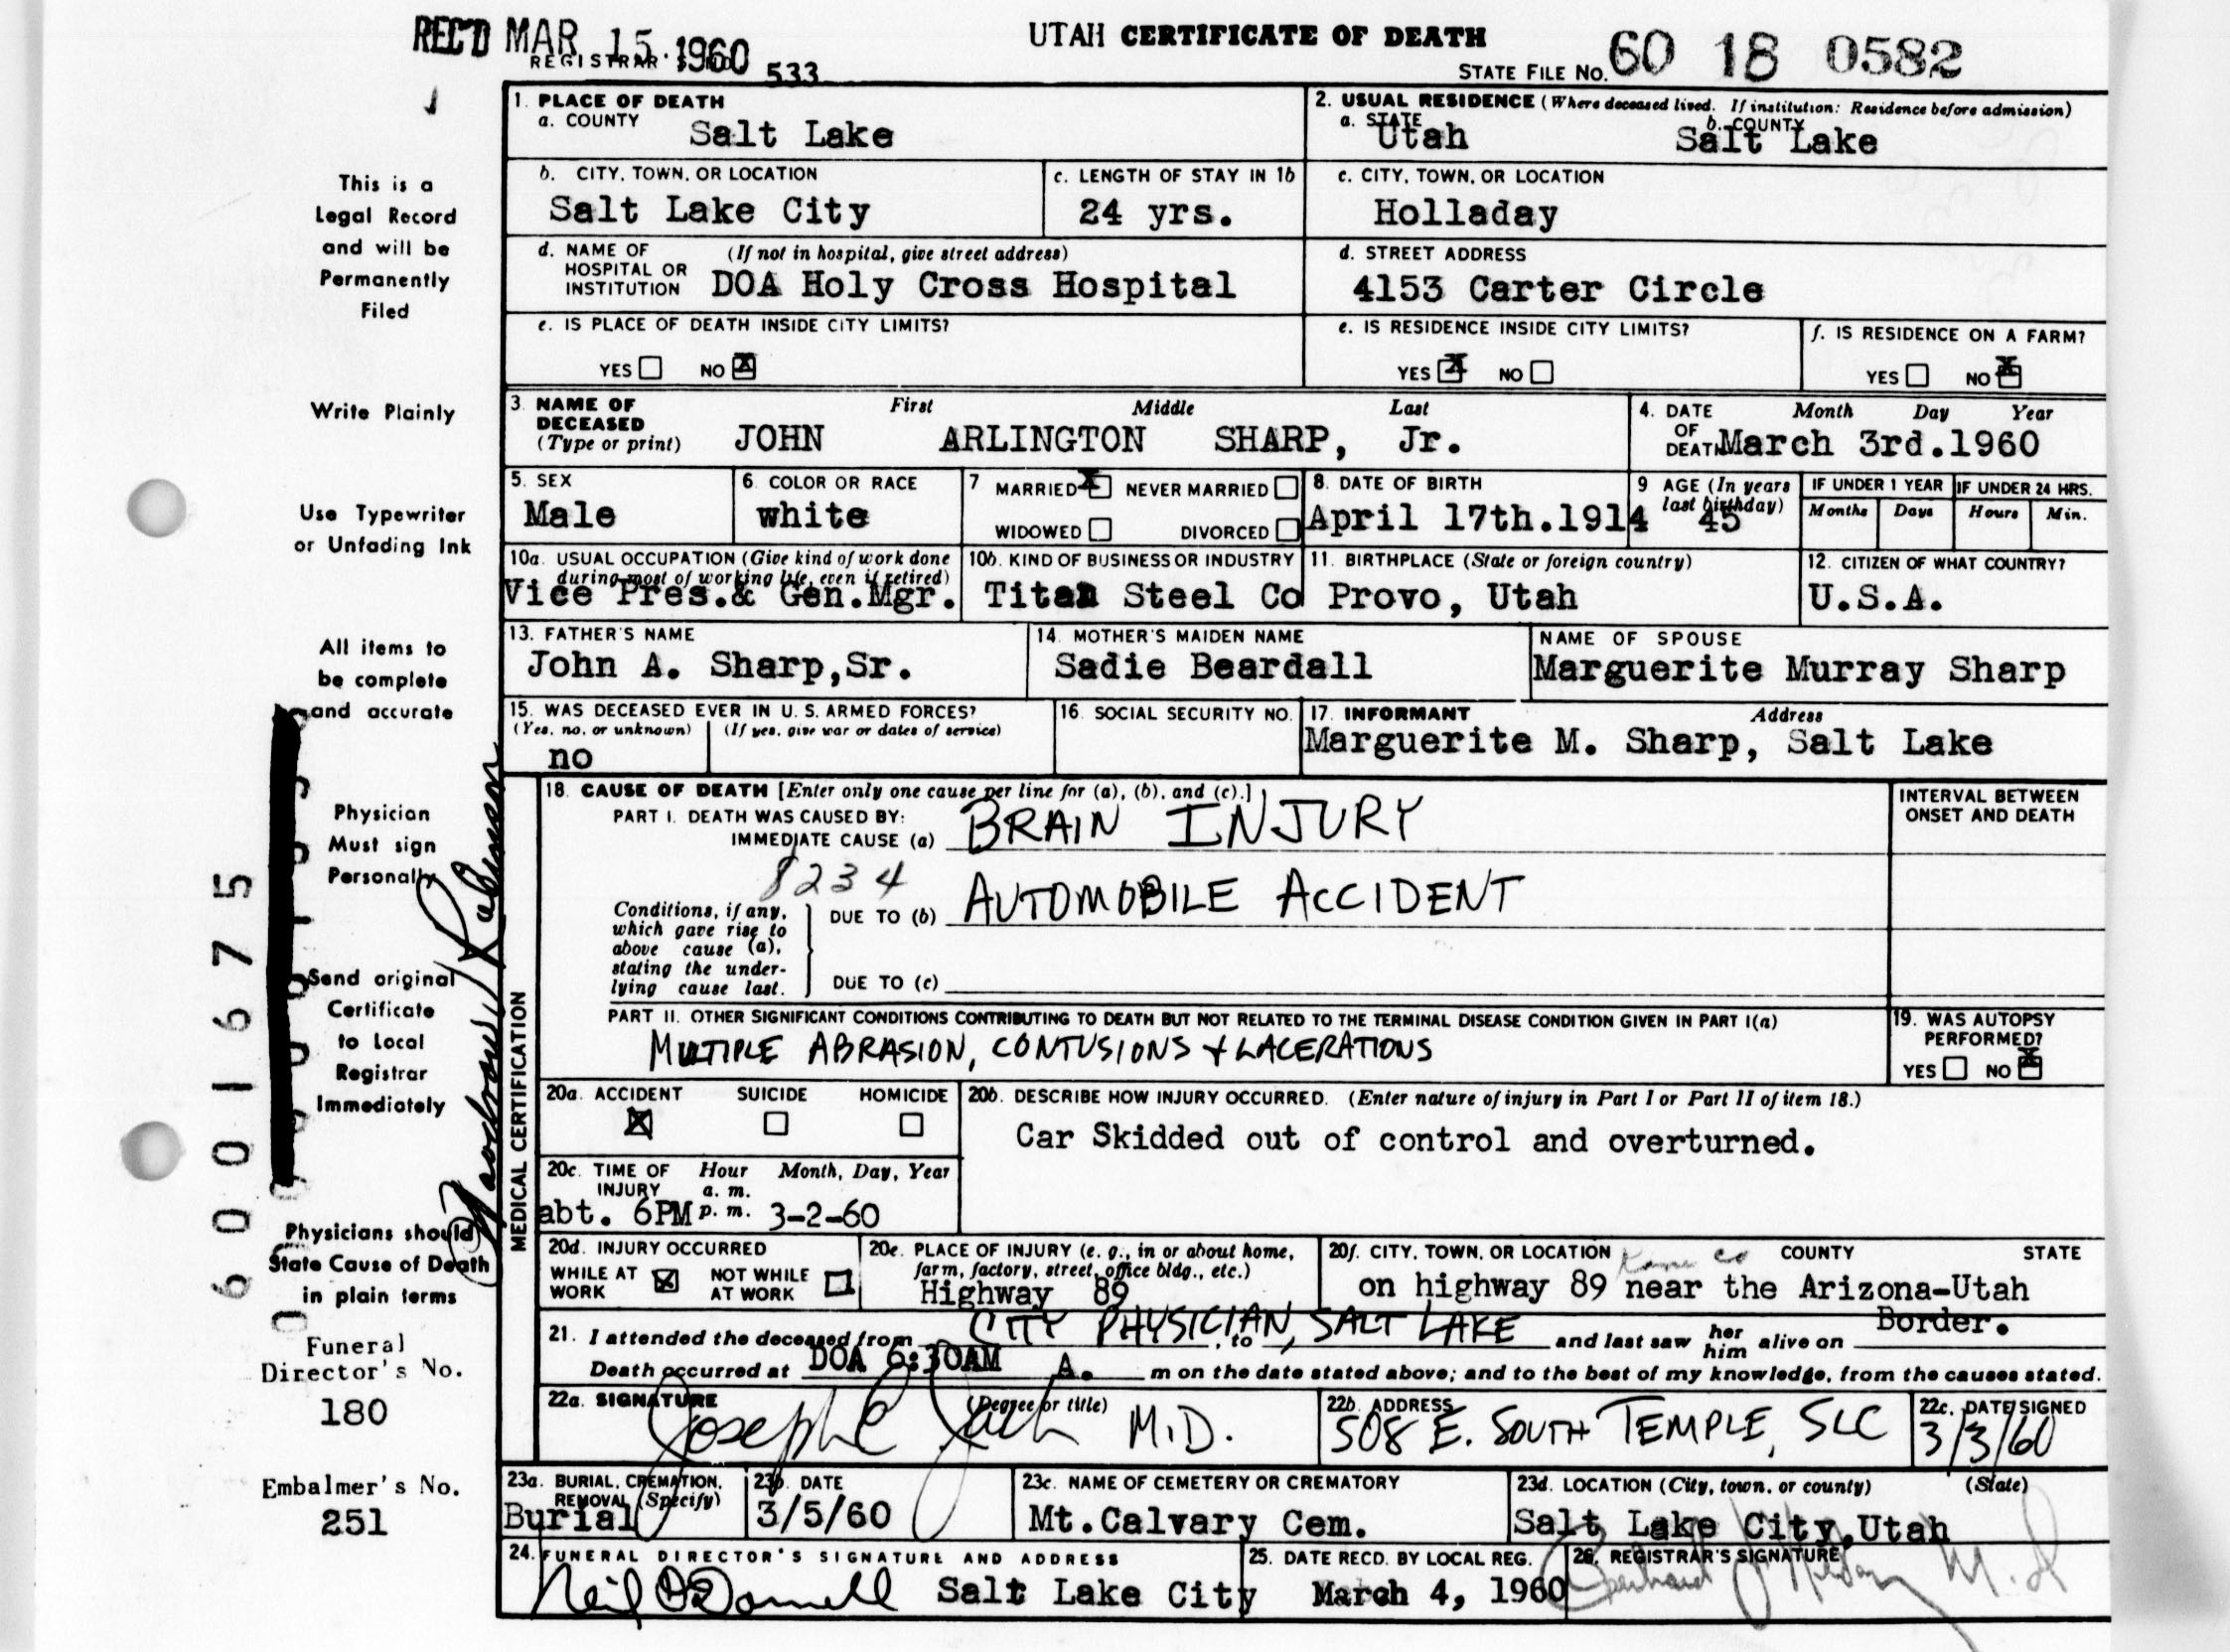 REC'D MAR 15 1960
REGISTRAR'S NO. 533
UTAH CERTIFICATE OF DEATH
STATE FILE NO. 60 18 0582
This is a
Legal Record
and will be
Permanently
Filed
Write Plainly
Use Typewriter
or Unfading Ink
All items to
be complete
and accurate
Physician
Must sign
Personally
Send original
Certificate
to Local
Registrar
Immediately
Physicians should
State Cause of Death
in plain terms
Funeral
Director's No.
180
Embalmer's No.
251
6001675
1. PLACE OF DEATH
a. COUNTY Salt Lake
2. USUAL RESIDENCE (Where deceased lived. If institution: Residence before admission)
a. STATE Utah b. COUNTY Salt Lake
b. CITY, TOWN, OR LOCATION
Salt Lake City
c. LENGTH OF STAY IN 1b
24 yrs.
c. CITY, TOWN, OR LOCATION
Holladay
d. NAME OF HOSPITAL OR INSTITUTION (If not in hospital, give street address)
DOA Holy Cross Hospital
d. STREET ADDRESS
4153 Carter Circle
e. IS PLACE OF DEATH INSIDE CITY LIMITS?
YES NO X
e. IS RESIDENCE INSIDE CITY LIMITS?
YES X NO
f. IS RESIDENCE ON A FARM?
YES NO X
3. NAME OF DECEASED (Type or print)
First Middle Last
JOHN ARLINGTON SHARP, Jr.
4. DATE OF DEATH Month Day Year
March 3rd.1960
5. SEX
Male
6. COLOR OR RACE
white
7 MARRIED X NEVER MARRIED
WIDOWED DIVORCED
8. DATE OF BIRTH
April 17th.1914
9 AGE (In years last birthday)
45
IF UNDER 1 YEAR IF UNDER 24 HRS.
Months Days Hours Min.
10a. USUAL OCCUPATION (Give kind of work done during most of working life, even if retired)
Vice Pres.& Gen.Mgr.
10b. KIND OF BUSINESS OR INDUSTRY
Titan Steel Co
11. BIRTHPLACE (State or foreign country)
Provo, Utah
12. CITIZEN OF WHAT COUNTRY?
U.S.A.
13. FATHER'S NAME
John A. Sharp,Sr.
14. MOTHER'S MAIDEN NAME
Sadie Beardall
NAME OF SPOUSE
Marguerite Murray Sharp
15. WAS DECEASED EVER IN U. S. ARMED FORCES?
(Yes, no, or unknown) (If yes, give war or dates of service)
no
16. SOCIAL SECURITY NO.
17. INFORMANT Address
Marguerite M. Sharp, Salt Lake
MEDICAL CERTIFICATION
18. CAUSE OF DEATH [Enter only one cause per line for (a), (b), and (c).]
PART I. DEATH WAS CAUSED BY:
IMMEDIATE CAUSE (a) BRAIN INJURY
8234
Conditions, if any, which gave rise to above cause (a), stating the underlying cause last.
DUE TO (b) AUTOMOBILE ACCIDENT
DUE TO (c)
INTERVAL BETWEEN
ONSET AND DEATH
PART II. OTHER SIGNIFICANT CONDITIONS CONTRIBUTING TO DEATH BUT NOT RELATED TO THE TERMINAL DISEASE CONDITION GIVEN IN PART I(a)
MULTIPLE ABRASION, CONTUSIONS + LACERATIONS
19. WAS AUTOPSY PERFORMED?
YES NO X
20a. ACCIDENT SUICIDE HOMICIDE
X
20b. DESCRIBE HOW INJURY OCCURRED. (Enter nature of injury in Part I or Part II of item 18.)
Car Skidded out of control and overturned.
20c. TIME OF INJURY Hour Month, Day, Year
a. m.
abt. 6PM p. m. 3-2-60
20d. INJURY OCCURRED
WHILE AT WORK X NOT WHILE AT WORK
20e. PLACE OF INJURY (e. g., in or about home, farm, factory, street, office bldg., etc.)
Highway 89
20f. CITY, TOWN, OR LOCATION COUNTY STATE
Kane Co
on highway 89 near the Arizona-Utah
Border.
21. I attended the deceased from CITY PHYSICIAN, to SALT LAKE and last saw her him alive on
Death occurred at DOA 6:30AM A. m on the date stated above; and to the best of my knowledge, from the causes stated.
22a. SIGNATURE (Degree or title)
Joseph C Jack M.D.
22b. ADDRESS
508 E. SOUTH TEMPLE, SLC
22c. DATE SIGNED
3/3/60
23a. BURIAL, CREMATION, REMOVAL (Specify)
Burial
23b. DATE
3/5/60
23c. NAME OF CEMETERY OR CREMATORY
Mt.Calvary Cem.
23d. LOCATION (City, town, or county) (State)
Salt Lake City,Utah
24. FUNERAL DIRECTOR'S SIGNATURE AND ADDRESS
Neil O'Donnell Salt Lake City
25. DATE RECD. BY LOCAL REG.
March 4, 1960
26. REGISTRAR'S SIGNATURE
M.D